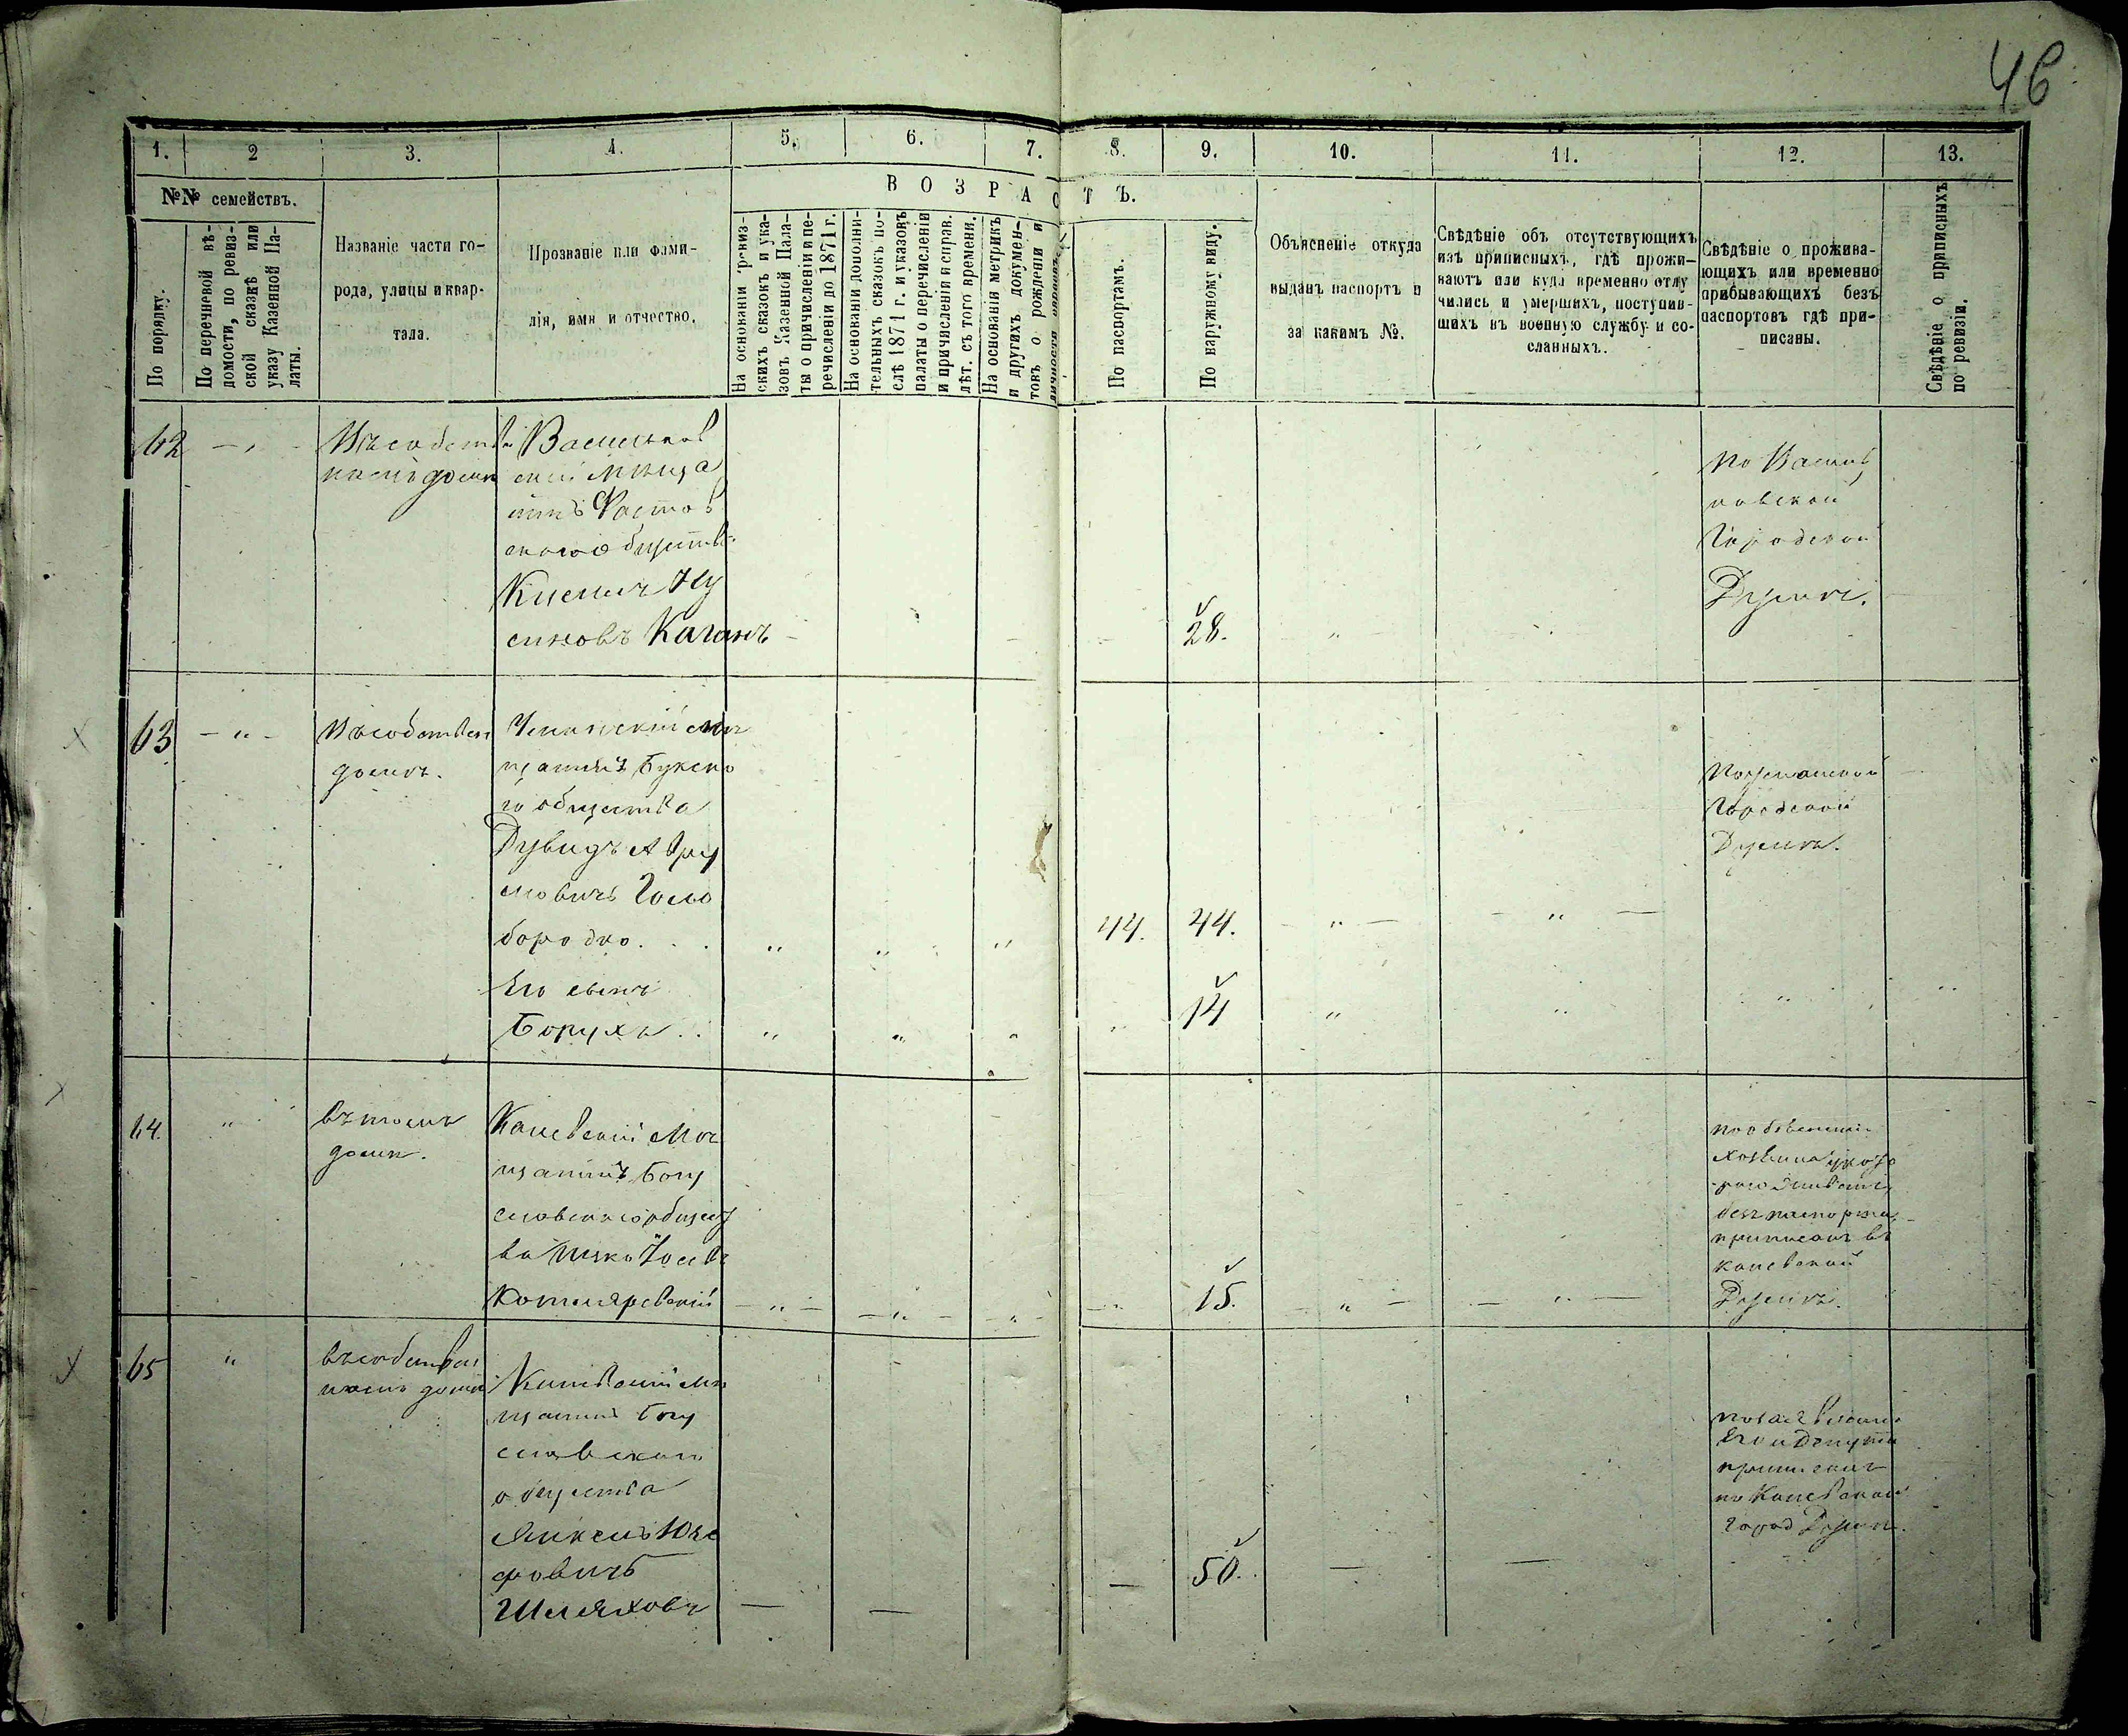 46
1. 2 3. 4. 5. 6. 7. 8. 9. 10. 11. 12. 13.
№№ семействъ.
По порядку.
По перечневой вѣ-
домости, по ревиз-
ской сказкѣ или
указу Казенной Па-
латы.
Названіе части го-
рода, улицы и квар-
тала.
Прозваніе или фами-
лія, имя и отчество.
ВОЗРАСТЪ.
На основаніи ревиз-
скихъ сказокъ и ука-
зовъ Казенной Пала-
ты о причисленіи и пе-
речисленіи до 1871 г.
На основаніи дополни-
тельныхъ сказокъ по-
слѣ 1871 г. и указовъ
палаты о перечисленіи
и причисленіи и справ.
лѣт. съ того времени.
На основаніи метрикъ
и другихъ докумен-
товъ о рожденіи и
По паспортамъ.
По наружному виду.
Объясненіе откуда
выданъ паспортъ и
за какимъ №.
Свѣдѣніе объ отсутствующихъ
изъ приписныхъ, гдѣ прожи-
ваютъ или куда временно отлу
чились и умершихъ, поступив-
шихъ въ военную службу и со-
сланныхъ.
Свѣдѣніе о прожива-
ющихъ или временно
прибывающихъ безъ
паспортовъ гдѣ при-
писаны.
Свѣдѣніе о приписныхъ
по ревизіи.
62
Въ собстве
номъ домѣ
Васильков
скій мѣща
нинъ Фастов
скаго обществ
сиховъ Каганъ
28.
по Василь
ковской
Городской
Думѣ.
63
Въ собствен
домѣ.
Уманскій мѣ
щанинъ Букско
го общества
Дувидъ Авру
мовичъ Голо
бородко...
44. 44.
Его сынъ
Борухъ..
14
по Уманской
Городской
Думѣ.
64.
въ томъ
домѣ.
Каневскій мѣ
щанинъ Богу
славскаго общест
ва Ицко Іосевъ
Котляревскій
15.
безъ паспорта,
приписанъ въ
каневской
Думѣ.
65
въ собствен
номъ домѣ
Каневскій мѣ
щанинъ Богу
славскаго
общества
фовичъ
Шмеяховъ
50.
приписанъ
по Каневской
город Думѣ.